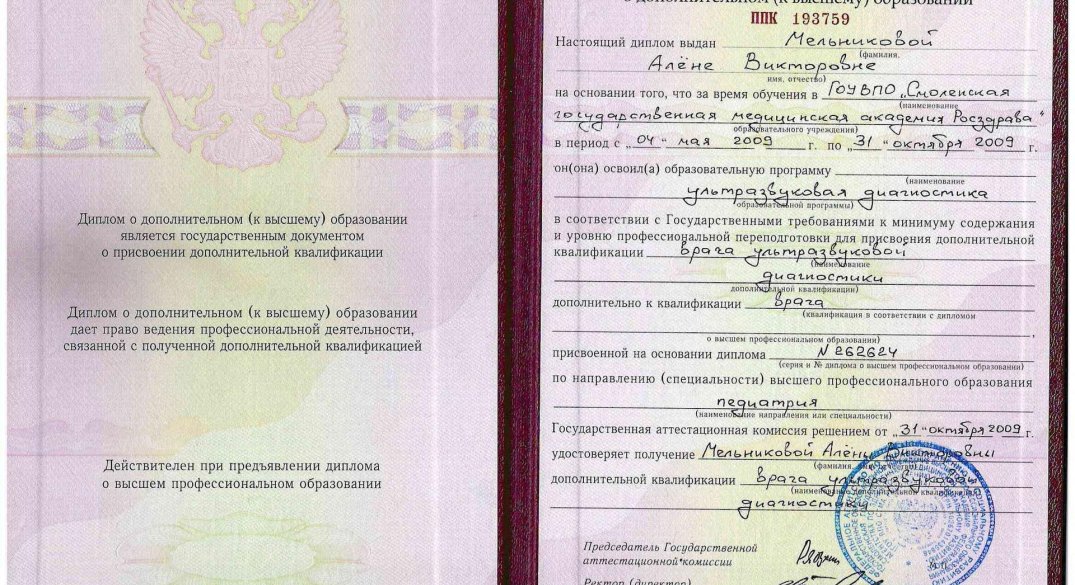 Диплом о дополнительном (к высшему) образовании
является государственным документом
о присвоении дополнительной квалификации
Диплом о дополнительном (к высшему) образовании
дает право ведения профессиональной деятельности,
связанной с полученной дополнительной квалификацией
Действителен при предъявлении диплома
о высшем профессиональном образовании
о дополнительном (к высшему) образовании
ППК 193759
Настоящий диплом выдан Мельниковой
(фамилия,
Алёне Викторовне
имя, отчество)
на основании того, что за время обучения в ГОУВПО „Смоленская
(наименование
государственная медицинская академия Росздрава"
образовательного учреждения)
в период с „04" мая 2009 г. по „31" октября 2009 г.
он(она) освоил(а) образовательную программу
(наименование
ультразвуковая диагностика
образовательной программы)
в соответствии с Государственными требованиями к минимуму содержания
и уровню профессиональной переподготовки для присвоения дополнительной
квалификации врача ультразвуковой
(наименование
диагностики
дополнительной квалификации)
дополнительно к квалификации врача
(квалификация в соответствии с дипломом
о высшем профессиональном образовании)
присвоенной на основании диплома №262624
(серия и № диплома о высшем профессиональном образовании)
по направлению (специальности) высшего профессионального образования
педиатрия
(наименование направления или специальности)
Государственная аттестационная комиссия решением от „31" октября 2009 г.
удостоверяет получение Мельниковой Алёны Викторовны
(фамилия, имя, отчество)
дополнительной квалификации врача ультразвуковой
(наименование дополнительной квалификации)
диагностики
Председатель Государственной
аттестационной комиссии
М.П.
Ректор (директор)